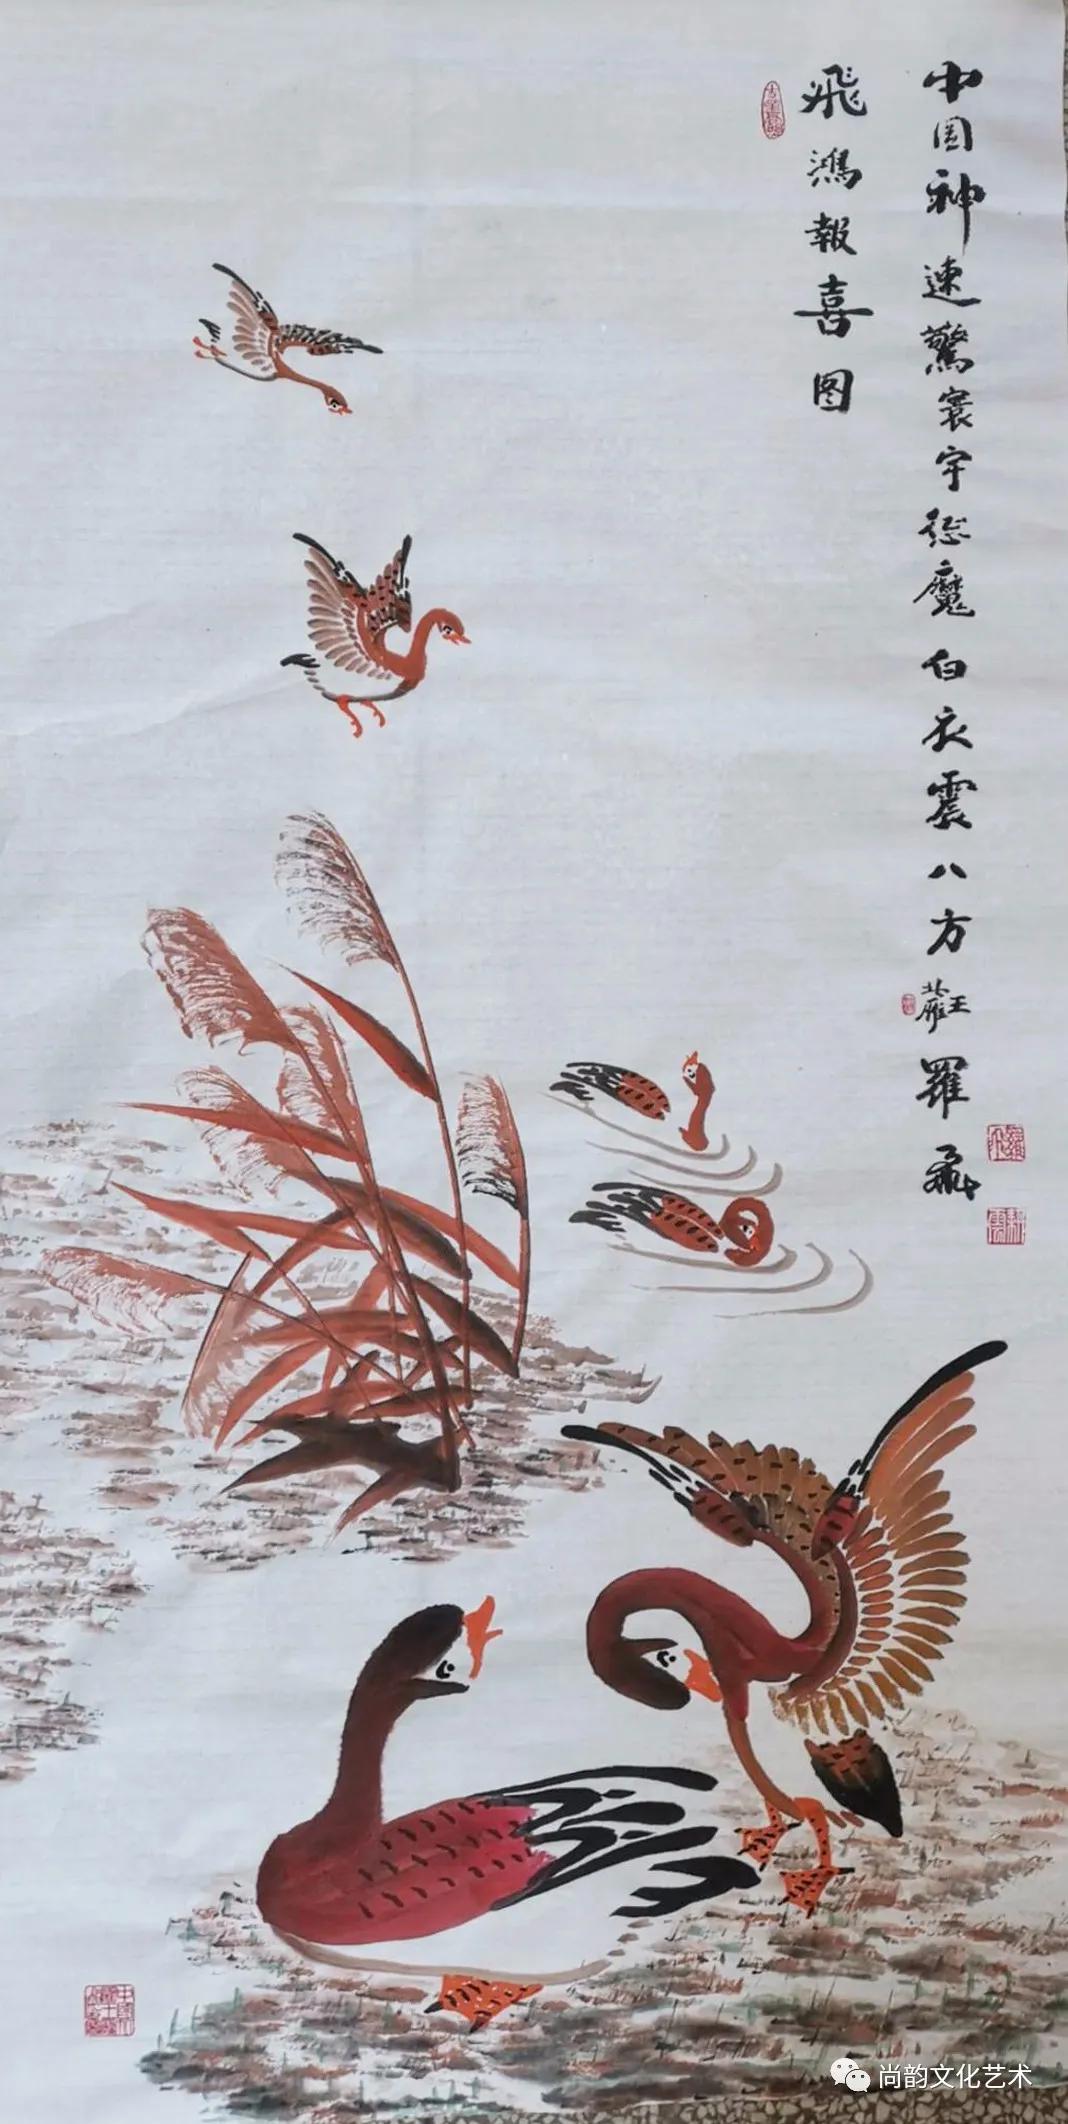 中国神速驚寰宇惩魔白衣震八方
北雁王
羅
飛鴻報喜图
尚韵文化艺术